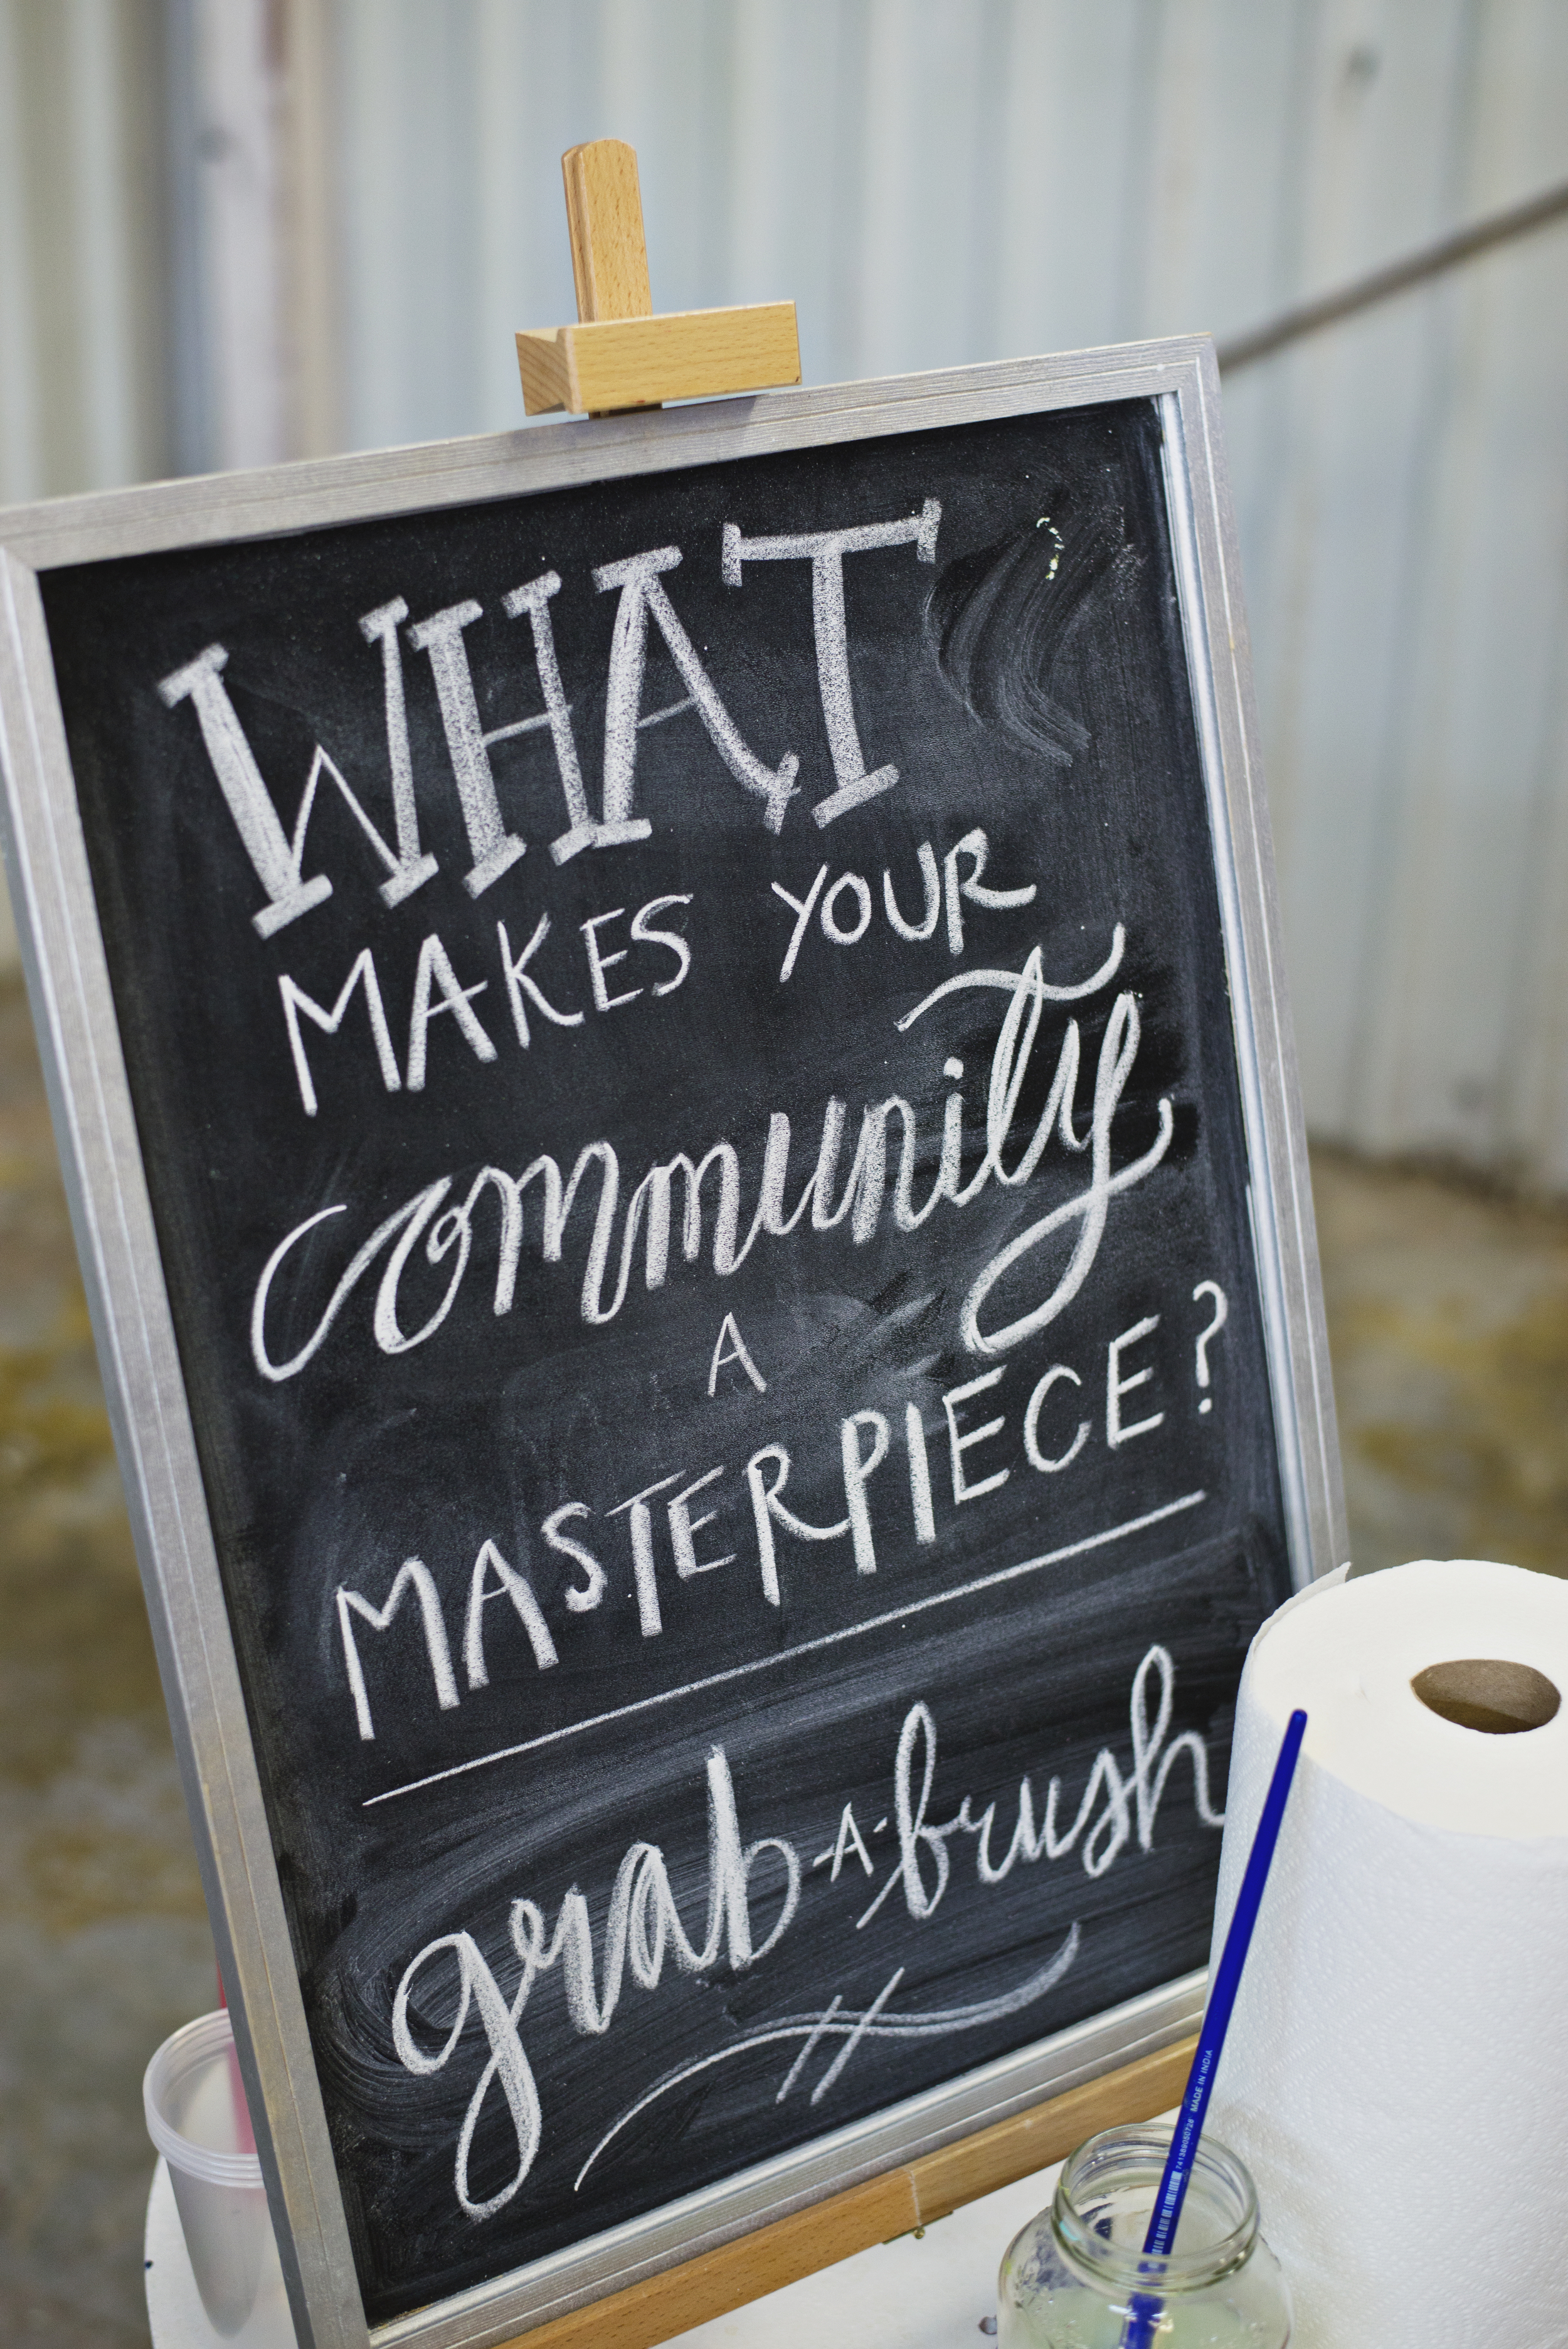 WHAT
MAKES YOUR
community
A
MASTERPIECE?
grab-A-brush
MADE IN INDIA